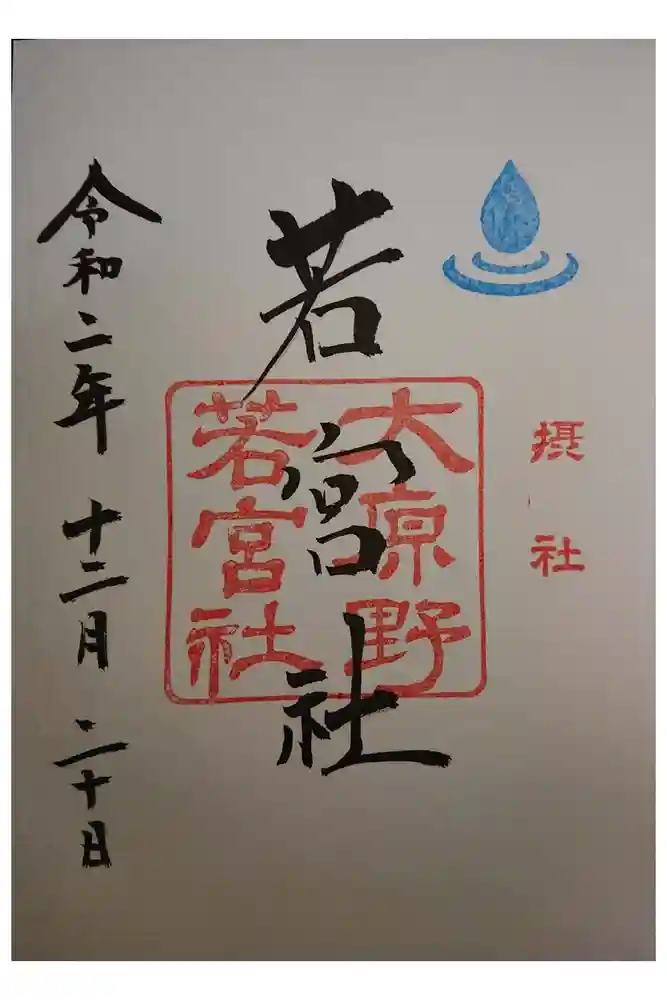 摂社
若宮社
大原野
若宮社
令和二年十二月二十日